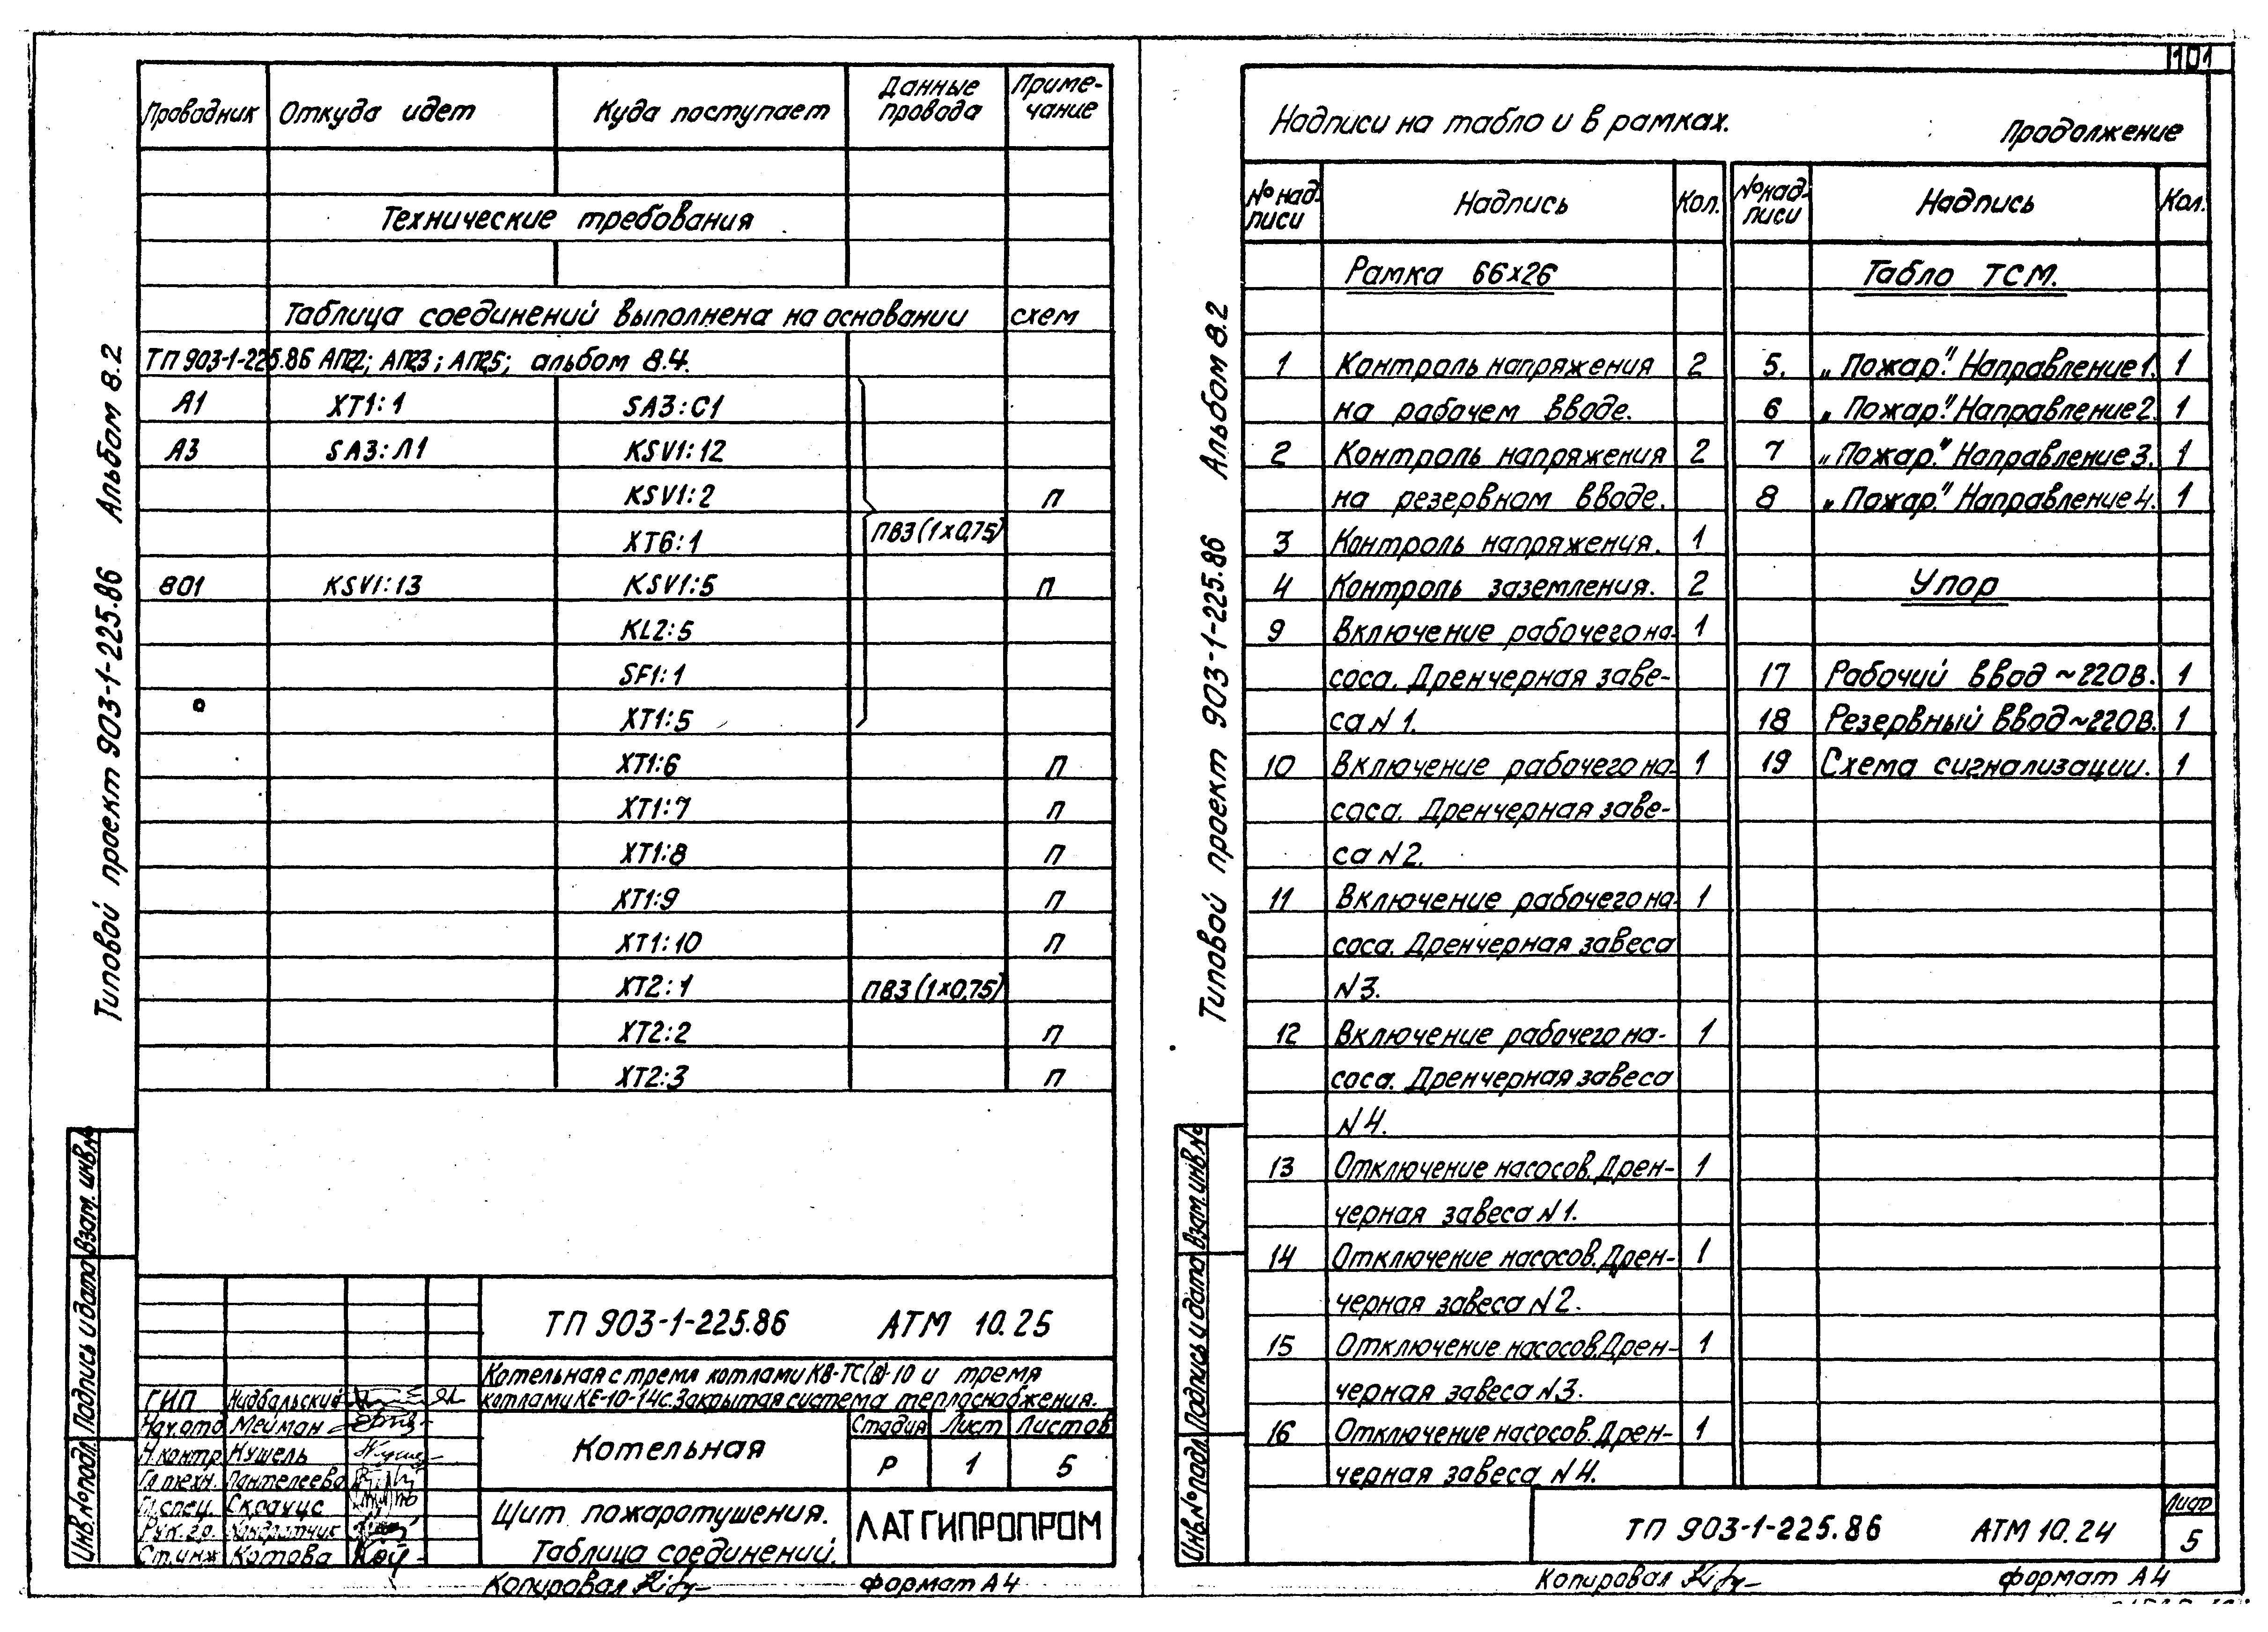 101
Проводник Откуда идет Куда поступает Данные провода Примечание
Технические требования
Таблица соединений выполнена на основании схем
ТП 903-1-225.86 АПС2; АПС3; АПС5; альбом 8.4.
А1 ХТ1:1 SA3:С1
А3 SA3:Л1 KSV1:12
KSV1:2 П
ХТ6:1 ПВ3 (1х0,75)
801 KSV1:13 KSV1:5 П
KL2:5
SF1:1
ХТ1:5
ХТ1:6 П
ХТ1:7 П
ХТ1:8 П
ХТ1:9 П
ХТ1:10 П
ХТ2:1 ПВ3 (1х0,75)
ХТ2:2 П
ХТ2:3 П
Типовой проект 903-1-225.86 Альбом 8.2
Взам. инв.№
Подпись и дата
Инв.№подл.
ТП 903-1-225.86 АТМ 10.25
Котельная с тремя котлами КВ-ТС(В)-10 и тремя
котлами КЕ-10-14с. Закрытая система теплоснабжения.
ГИП Нидбальский
Нач.отд Мейман
Н.контр Нушель
Гл.техн. Пантелеева
Гл.спец. Скраучс
Рук.гр.
Ст.инж Котова
Котельная
Стадия Лист Листов
Р 1 5
Щит пожаротушения.
Таблица соединений.
ЛАТГИПРОПРОМ
Копировал
формат А4
Надписи на табло и в рамках.
Продолжение
№ надписи Надпись Кол. № надписи Надпись Кол.
Рамка 66х26
1 Контроль напряжения 2
на рабочем вводе.
2 Контроль напряжения 2
на резервном вводе.
3 Контроль напряжения. 1
4 Контроль заземления. 2
9 Включение рабочего на- 1
соса. Дренчерная заве-
са N1.
10 Включение рабочего на- 1
соса. Дренчерная заве-
са N2.
11 Включение рабочего на- 1
соса. Дренчерная завеса
N3.
12 Включение рабочего на- 1
соса. Дренчерная завеса
N4.
13 Отключение насосов. Дрен- 1
черная завеса N1.
14 Отключение насосов. Дрен- 1
черная завеса N2.
15 Отключение насосов. Дрен- 1
черная завеса N3.
16 Отключение насосов. Дрен- 1
черная завеса N4.
Табло ТСМ.
5. „Пожар." Направление 1. 1
6 „Пожар." Направление 2. 1
7 „Пожар." Направление 3. 1
8 „Пожар." Направление 4. 1
Упор
17 Рабочий ввод ~220в. 1
18 Резервный ввод ~220в. 1
19 Схема сигнализации. 1
Типовой проект 903-1-225.86 Альбом 8.2
Взам. инв.№
Подпись и дата
Инв.№подл.
ТП 903-1-225.86 АТМ 10.24
Лист
5
Копировал
формат А4